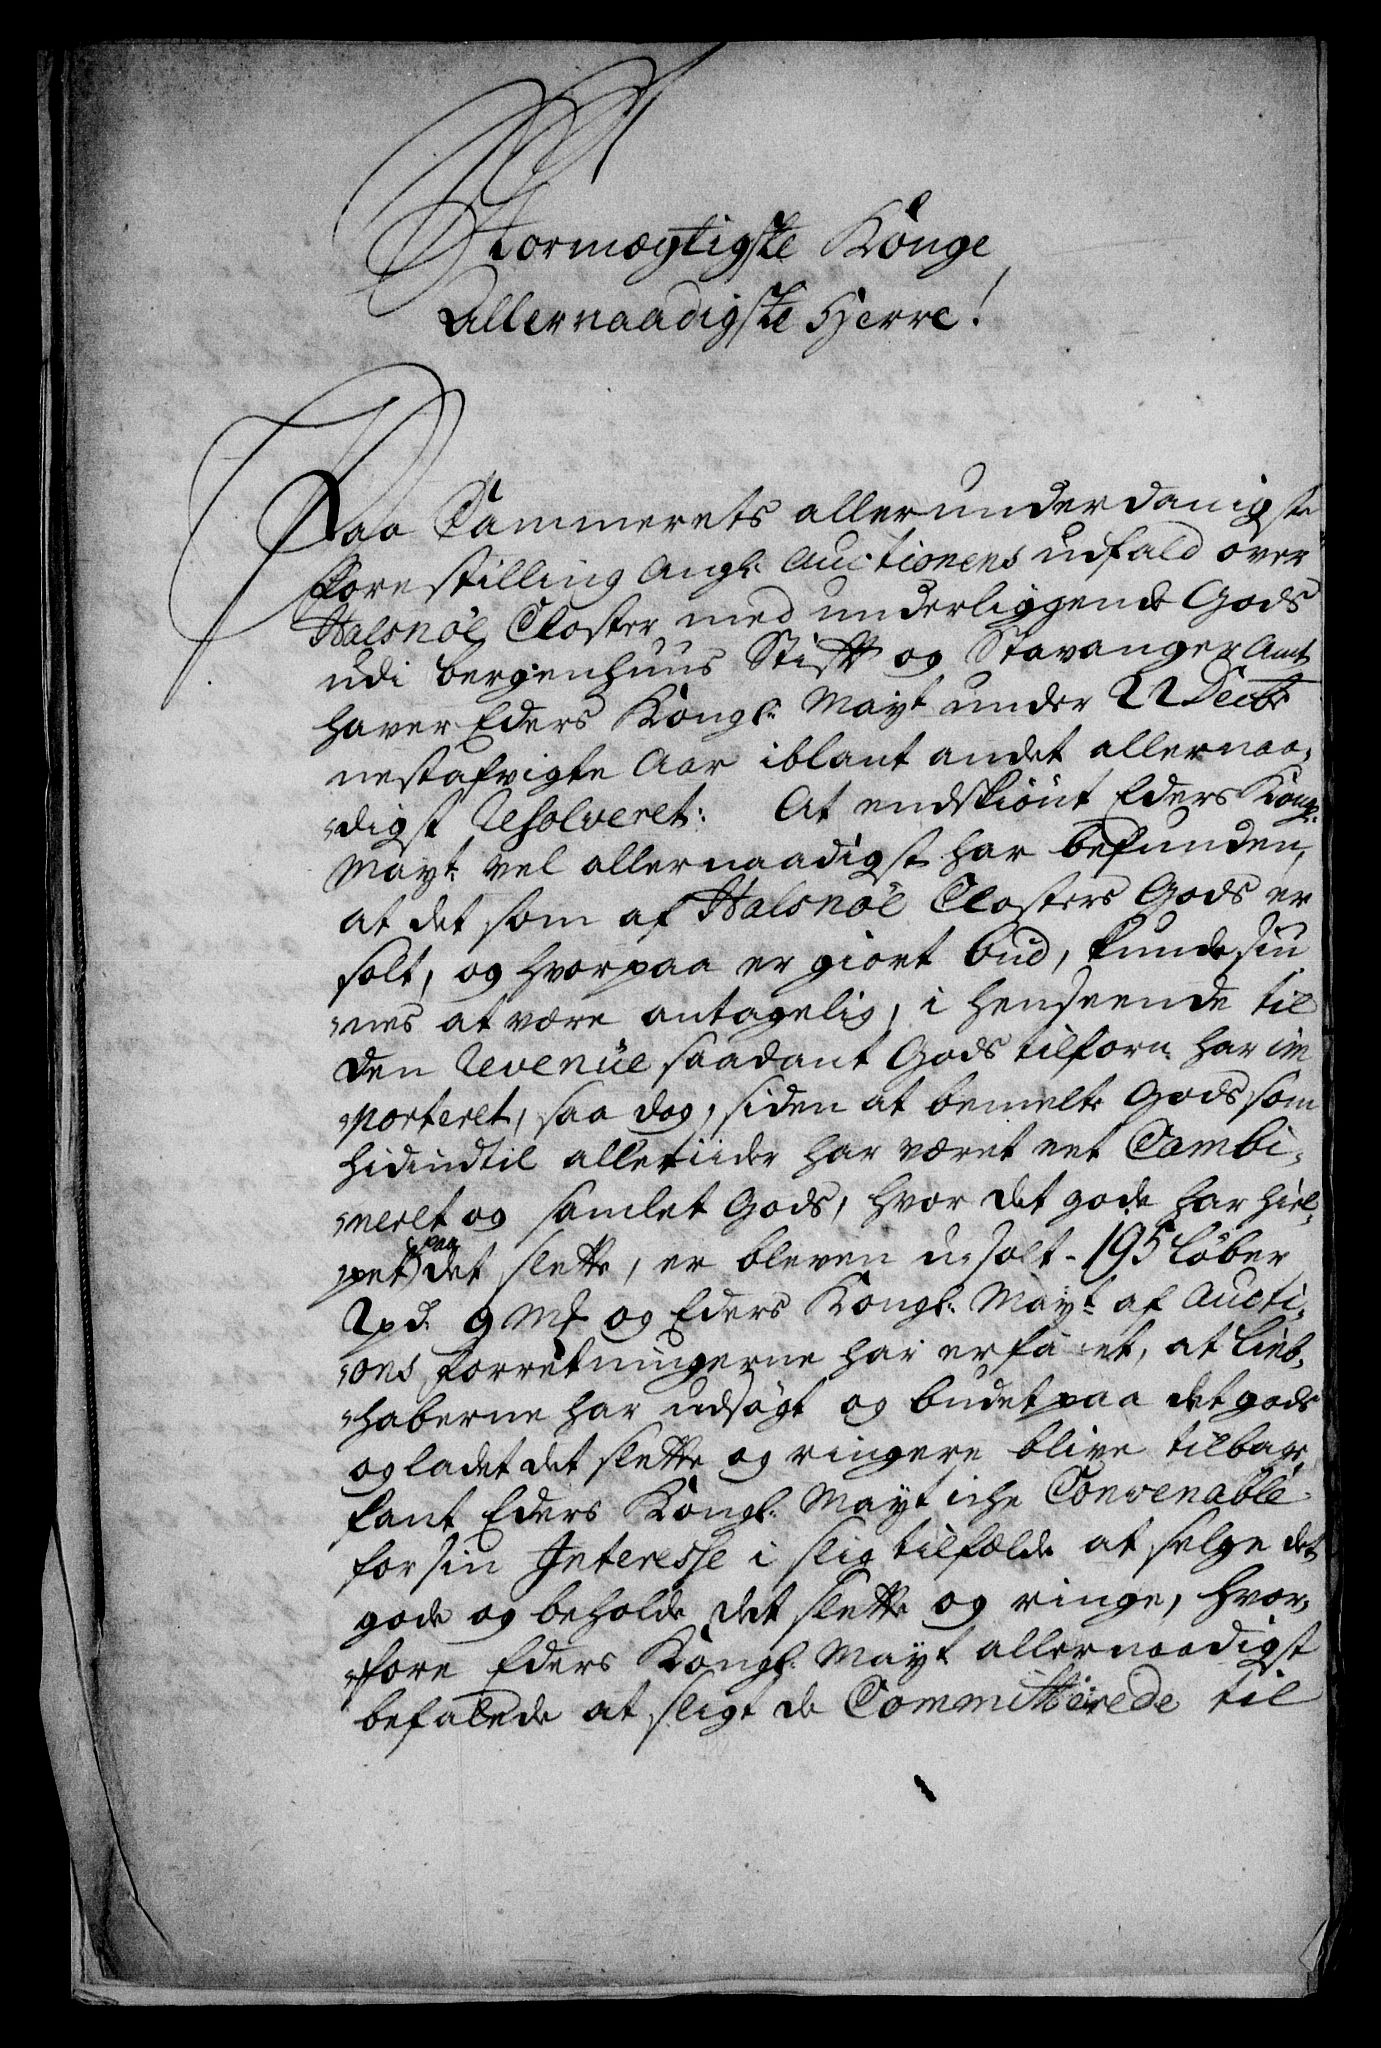 Stormægtigste Konge
Allernaadigste Herre!
Paa Cammerets allerunderdanigste
forestilling angl: Auctionens udfald over
Halsnöe Closter med underliggende Gods
udi bergenhuus Stift og Stavanger Amt
haver Eders Kongl: Mayt under 22 Decbr
nestafvigte Aar iblant andet allernaa-
digst Resolveret: At endskiönt Eders Kongl:
Mayt: vel allernaadigst har befunden,
at det som af Halsnöe Closters Gods er
solt, og hvorpaa er giort bud, kunde sin
nes at være antagelig, i henseende til
den Revenüe saadant Gods tilforn har im
porteret, saa dog, siden at bemelte Gods som
hidindtil alletiider har været eet Combi-
neret og samlet Gods, hvor det gode har hiel-
pet paa det slette, er bleven u-solt - 195 Löber
2pd: 9 Mk og Eders Kongl: Mayt: af Aucti-
ons forretningerne har erfaret, at lieb-
haberne har udsögt og budet paa det gode
og ladet det slette og ringere blive tilbage,
fant Eders Kongl: Mayt iche Convenable
for sin Interesse i slig tilfælde at selge det
gode og beholde det slette og ringe, hvor-
fore Eders Kongl: Mayt allernaadigst
befalede at sligt de Committerede til